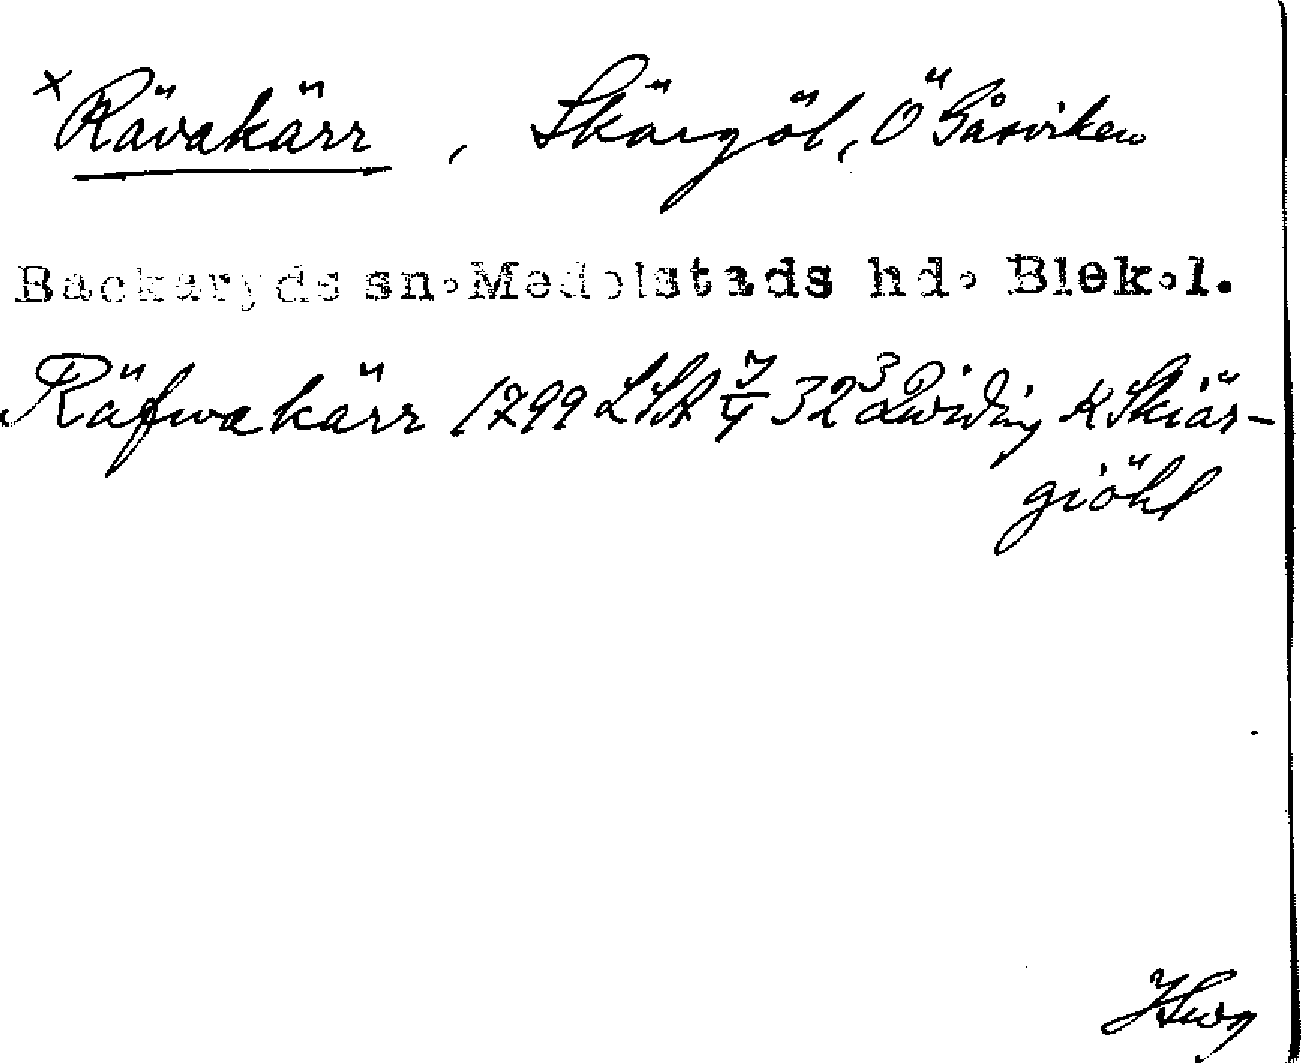 × Rävakärr, Skärgöl, Ö Gåsviken
Backaryds sn. Medelstads hd. Blek.l.
Räfwakärr 1799 LSA 7/4 32³ K Skiär-
giöhl